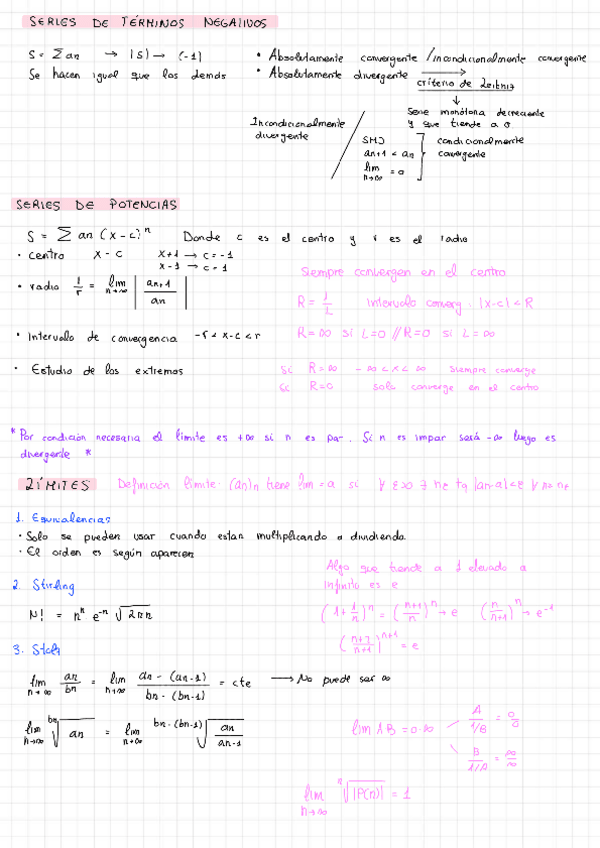 SERIES DE TÉRMINOS NEGATIVOS
S = Σ an → |S| → (-1)
Se hacen igual que las demás
• Absolutamente convergente / incondicionalmente convergente
• Absolutamente divergente →
criterio de Leibniz
↓
Serie monótona decreciente
y que tiende a 0
Incondicionalmente
divergente
SMD
an+1 < an
lim n→∞ = 0
condicionalmente
convergente
SERIES DE POTENCIAS
S = Σ an (x-c)^n Donde c es el centro y r es el radio
• centro x - c x+1 → c=-1
x-1 → c=1
• radio 1/r = lim n→∞ |an+1/an|
Siempre convergen en el centro
R = 1/L Intervalo converg: |x-c| < R
R=∞ si L=0 // R=0 si L=∞
• Intervalo de convergencia -r < x-c < r
• Estudio de los extremos
Si R=∞ -∞ < x < ∞ Siempre converge
Si R=0 Solo converge en el centro
* Por condición necesaria el límite es +∞ si n es par. Si n es impar será -∞ luego es
divergente *
LÍMITES Definición límite: (an)n tiene lim = a si ∀ ε>0 ∃ nε tq |an-a|<ε ∀ n≥nε
1. Equivalencias
• Solo se pueden usar cuando estan multiplicando o dividiendo.
• El orden es según aparecen
Algo que tiende a 1 elevado a
infinito es e
(1+1/n)^n = (n+1/n)^n → e (n/n+1)^n → e^-1
(n+1/n)^n+1 = e
2. Stirling
N! = n^n e^-n √2πn
3. Stolz
lim n→∞ an/bn = lim n→∞ an - (an-1)/bn - (bn-1) = cte → No puede ser ∞
lim n→∞ bn√an = lim n→∞ bn-(bn-1)√an/an-1
lim AB = 0·∞
A/1/B = 0/0
B/1/A = ∞/∞
lim n→∞ n√|P(n)| = 1